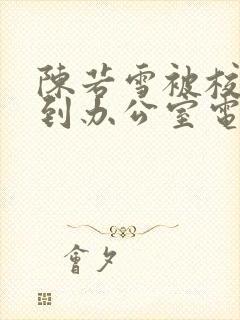 陳若雪被校
到办公室電
會夕